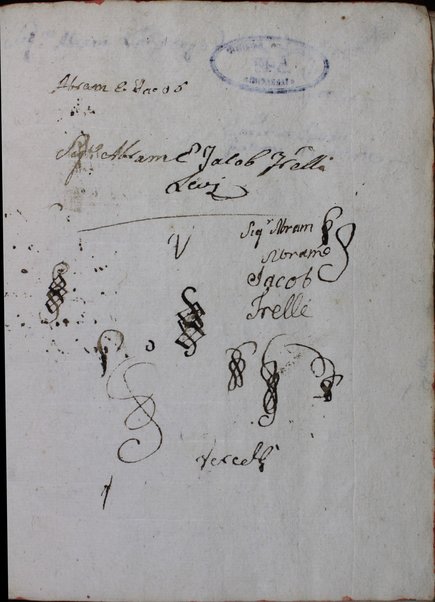 Abram E Jacob
Sig.ri Abram E Jacob Frelli
Levi
V
Sig.r Abram
Abramo
Jacob
Frelli
Vercelli